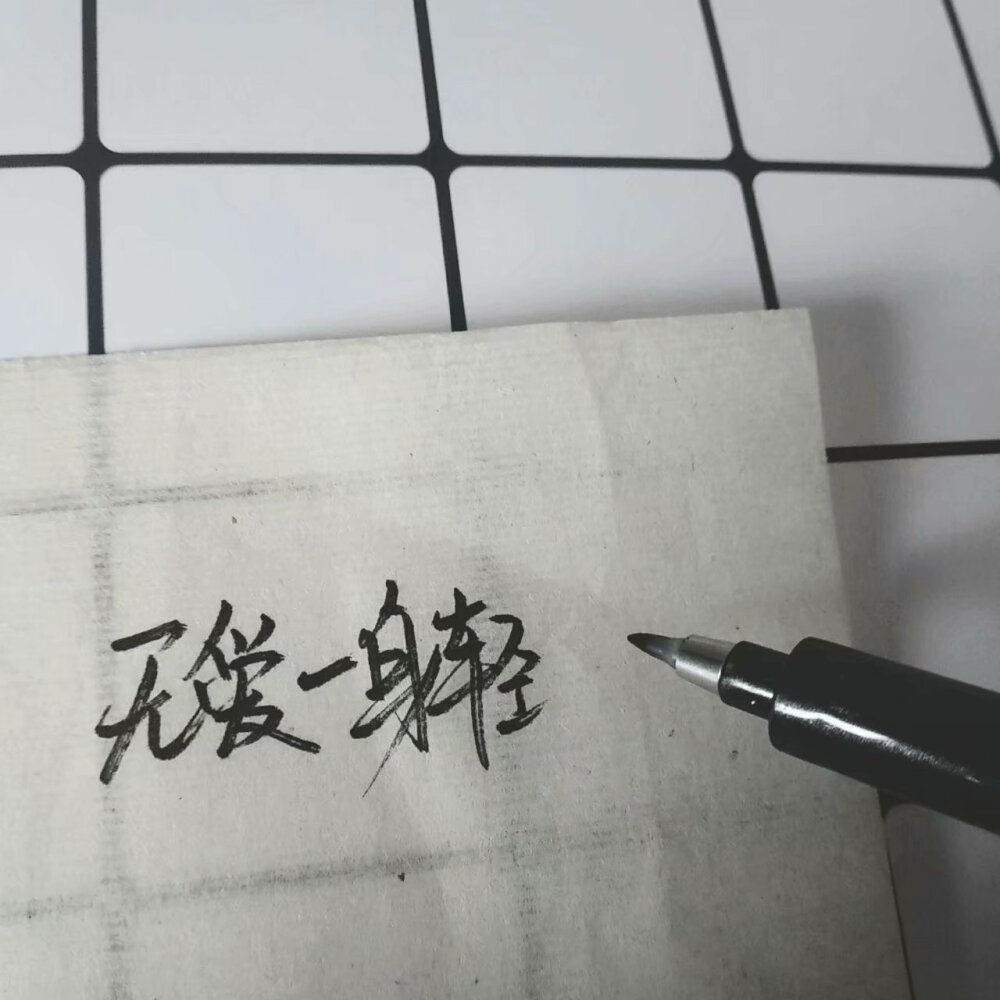 无爱一身轻